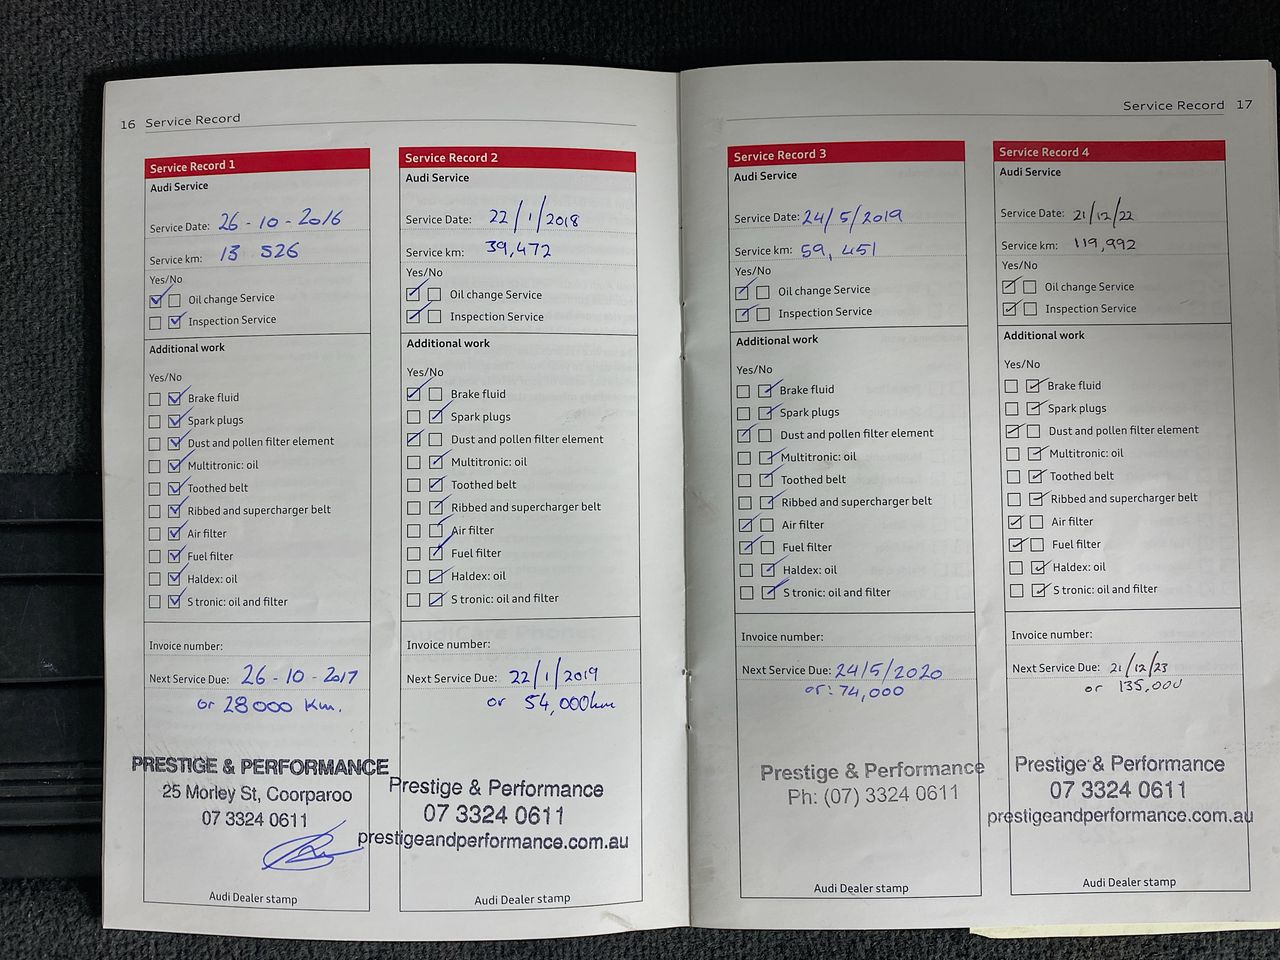 16 Service Record
Service Record 1
Audi Service
Service Date: 26-10-2016
Service km: 13 526
Yes/No
Oil change Service
Inspection Service
Additional work
Yes/No
Brake fluid
Spark plugs
Dust and pollen filter element
Multitronic: oil
Toothed belt
Ribbed and supercharger belt
Air filter
Fuel filter
Haldex: oil
S tronic: oil and filter
Invoice number:
Next Service Due: 26-10-2017
or 28000 Km.
PRESTIGE & PERFORMANCE
25 Morley St, Coorparoo
07 3324 0611
Audi Dealer stamp
Service Record 2
Audi Service
Service Date: 22/1/2018
Service km: 39,472
Yes/No
Oil change Service
Inspection Service
Additional work
Yes/No
Brake fluid
Spark plugs
Dust and pollen filter element
Multitronic: oil
Toothed belt
Ribbed and supercharger belt
Air filter
Fuel filter
Haldex: oil
S tronic: oil and filter
Invoice number:
Next Service Due: 22/1/2019
or 54,000km
Prestige & Performance
07 3324 0611
prestigeandperformance.com.au
Audi Dealer stamp
Service Record 17
Service Record 3
Audi Service
Service Date: 24/5/2019
Service km: 59,451
Yes/No
Oil change Service
Inspection Service
Additional work
Yes/No
Brake fluid
Spark plugs
Dust and pollen filter element
Multitronic: oil
Toothed belt
Ribbed and supercharger belt
Air filter
Fuel filter
Haldex: oil
S tronic: oil and filter
Invoice number:
Next Service Due: 24/5/2020
or: 74,000
Prestige & Performance
Ph: (07) 3324 0611
Audi Dealer stamp
Service Record 4
Audi Service
Service Date: 21/12/22
Service km: 119,992
Yes/No
Oil change Service
Inspection Service
Additional work
Yes/No
Brake fluid
Spark plugs
Dust and pollen filter element
Multitronic: oil
Toothed belt
Ribbed and supercharger belt
Air filter
Fuel filter
Haldex: oil
S tronic: oil and filter
Invoice number:
Next Service Due: 21/12/23
or 135,000
Prestige & Performance
07 3324 0611
prestigeandperformance.com.au
Audi Dealer stamp